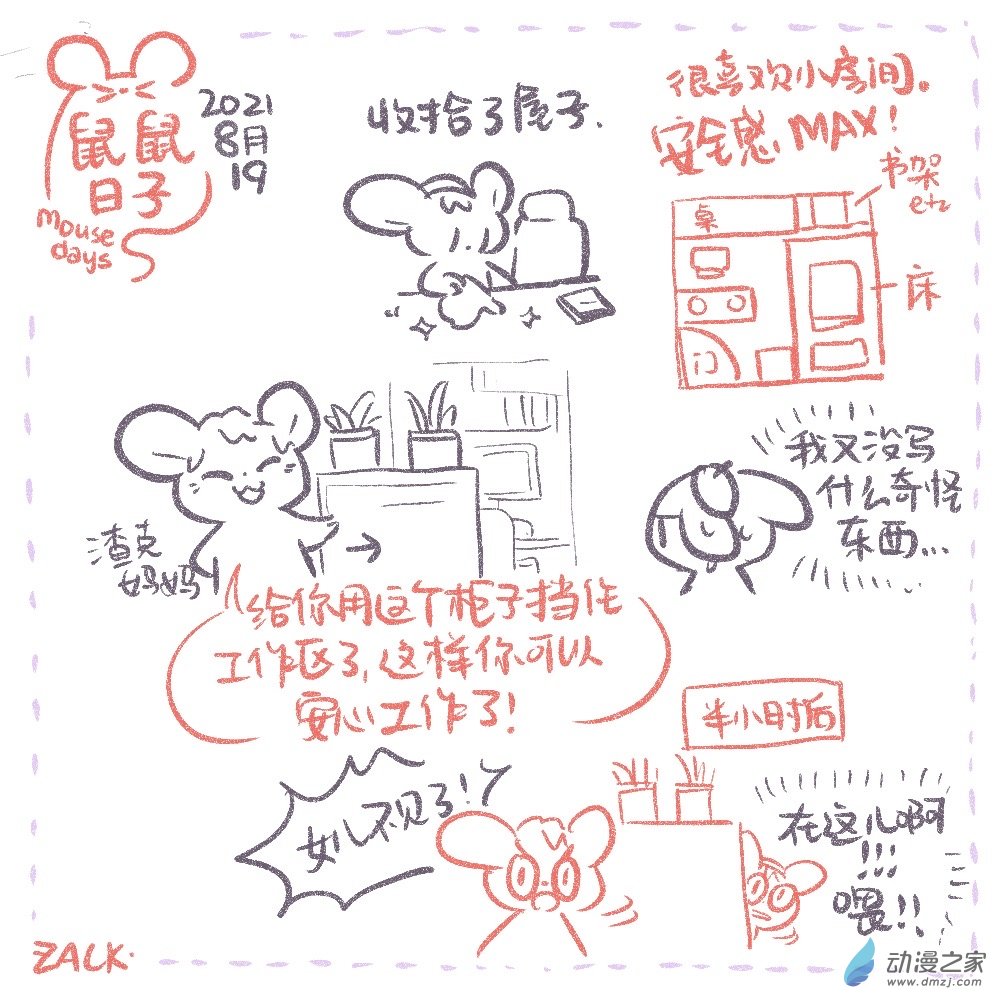 鼠鼠
日子
mouse
days
2021
8月
19
收拾了屋子.
很喜欢小房间。
安全感 MAX!
书架
etc
桌
床
门
渣克
妈妈
给你用这个柜子挡住
工作区了,这样你可以
安心工作了!
我又没写
什么奇怪
东西...
半小时后
女儿不见了!
在这儿啊
!!!
喂!!
ZALK.
动漫之家
www.dmzj.com